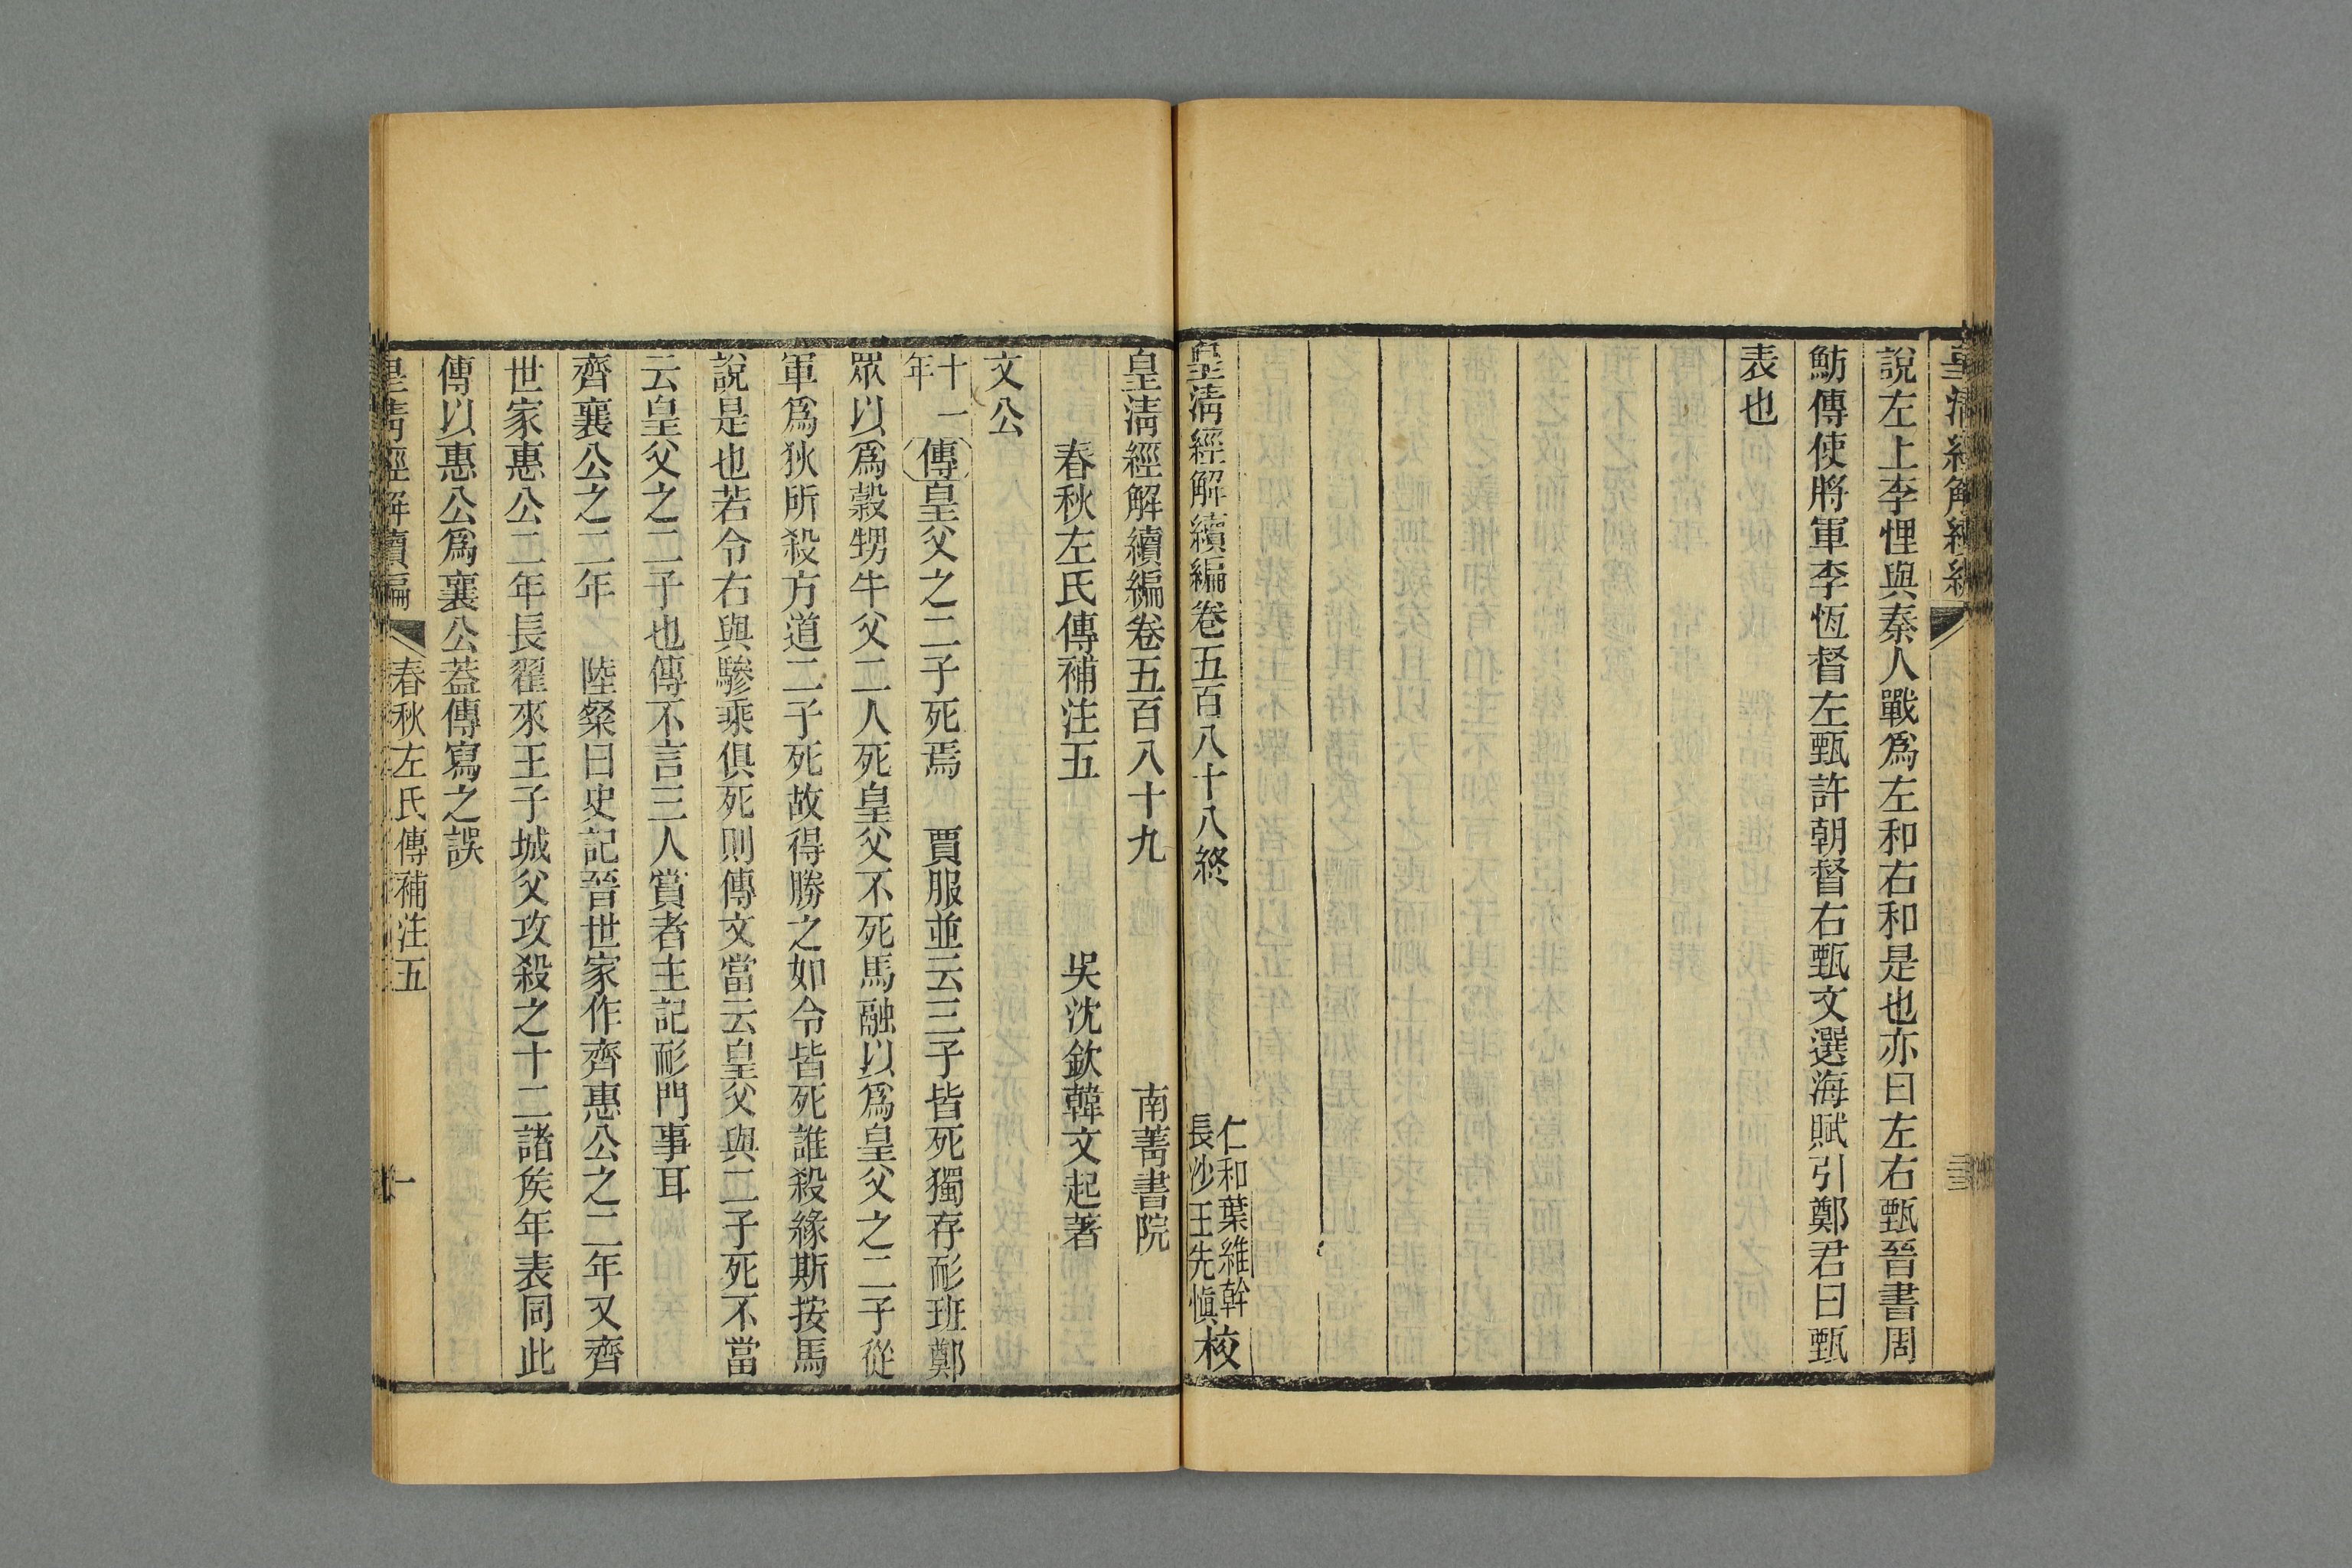 說左上李悝與秦人戰爲左和右和是也亦曰左右甄晉書周
魴傳使將軍李恆督左甄許朝督右甄文選海賦引鄭君曰甄
表也
皇清經解續編卷五百八十八終
仁和葉維幹
長沙王先愼校
皇清經解續編卷五百八十九
南菁書院
春秋左氏傳補注五
吳沈欽韓文起著
文公
十一年
傳皇父之二子死焉 賈服並云三子皆死獨存耏班鄭
眾以爲穀甥牛父二人死皇父不死馬融以爲皇父之二子從
軍爲狄所殺方道二子死故得勝之如令皆死誰殺緣斯按馬
說是也若令右與驂乘俱死則傳文當云皇父與二子死不當
云皇父之二子也傳不言三人賞者主記耏門事耳
齊襄公之二年 陸粲曰史記晉世家作齊惠公之二年又齊
世家惠公二年長翟來王子城父攻殺之十二諸矦年表同此
傳以惠公爲襄公蓋傳寫之誤
皇清經解續編 春秋左氏傳補注五 一